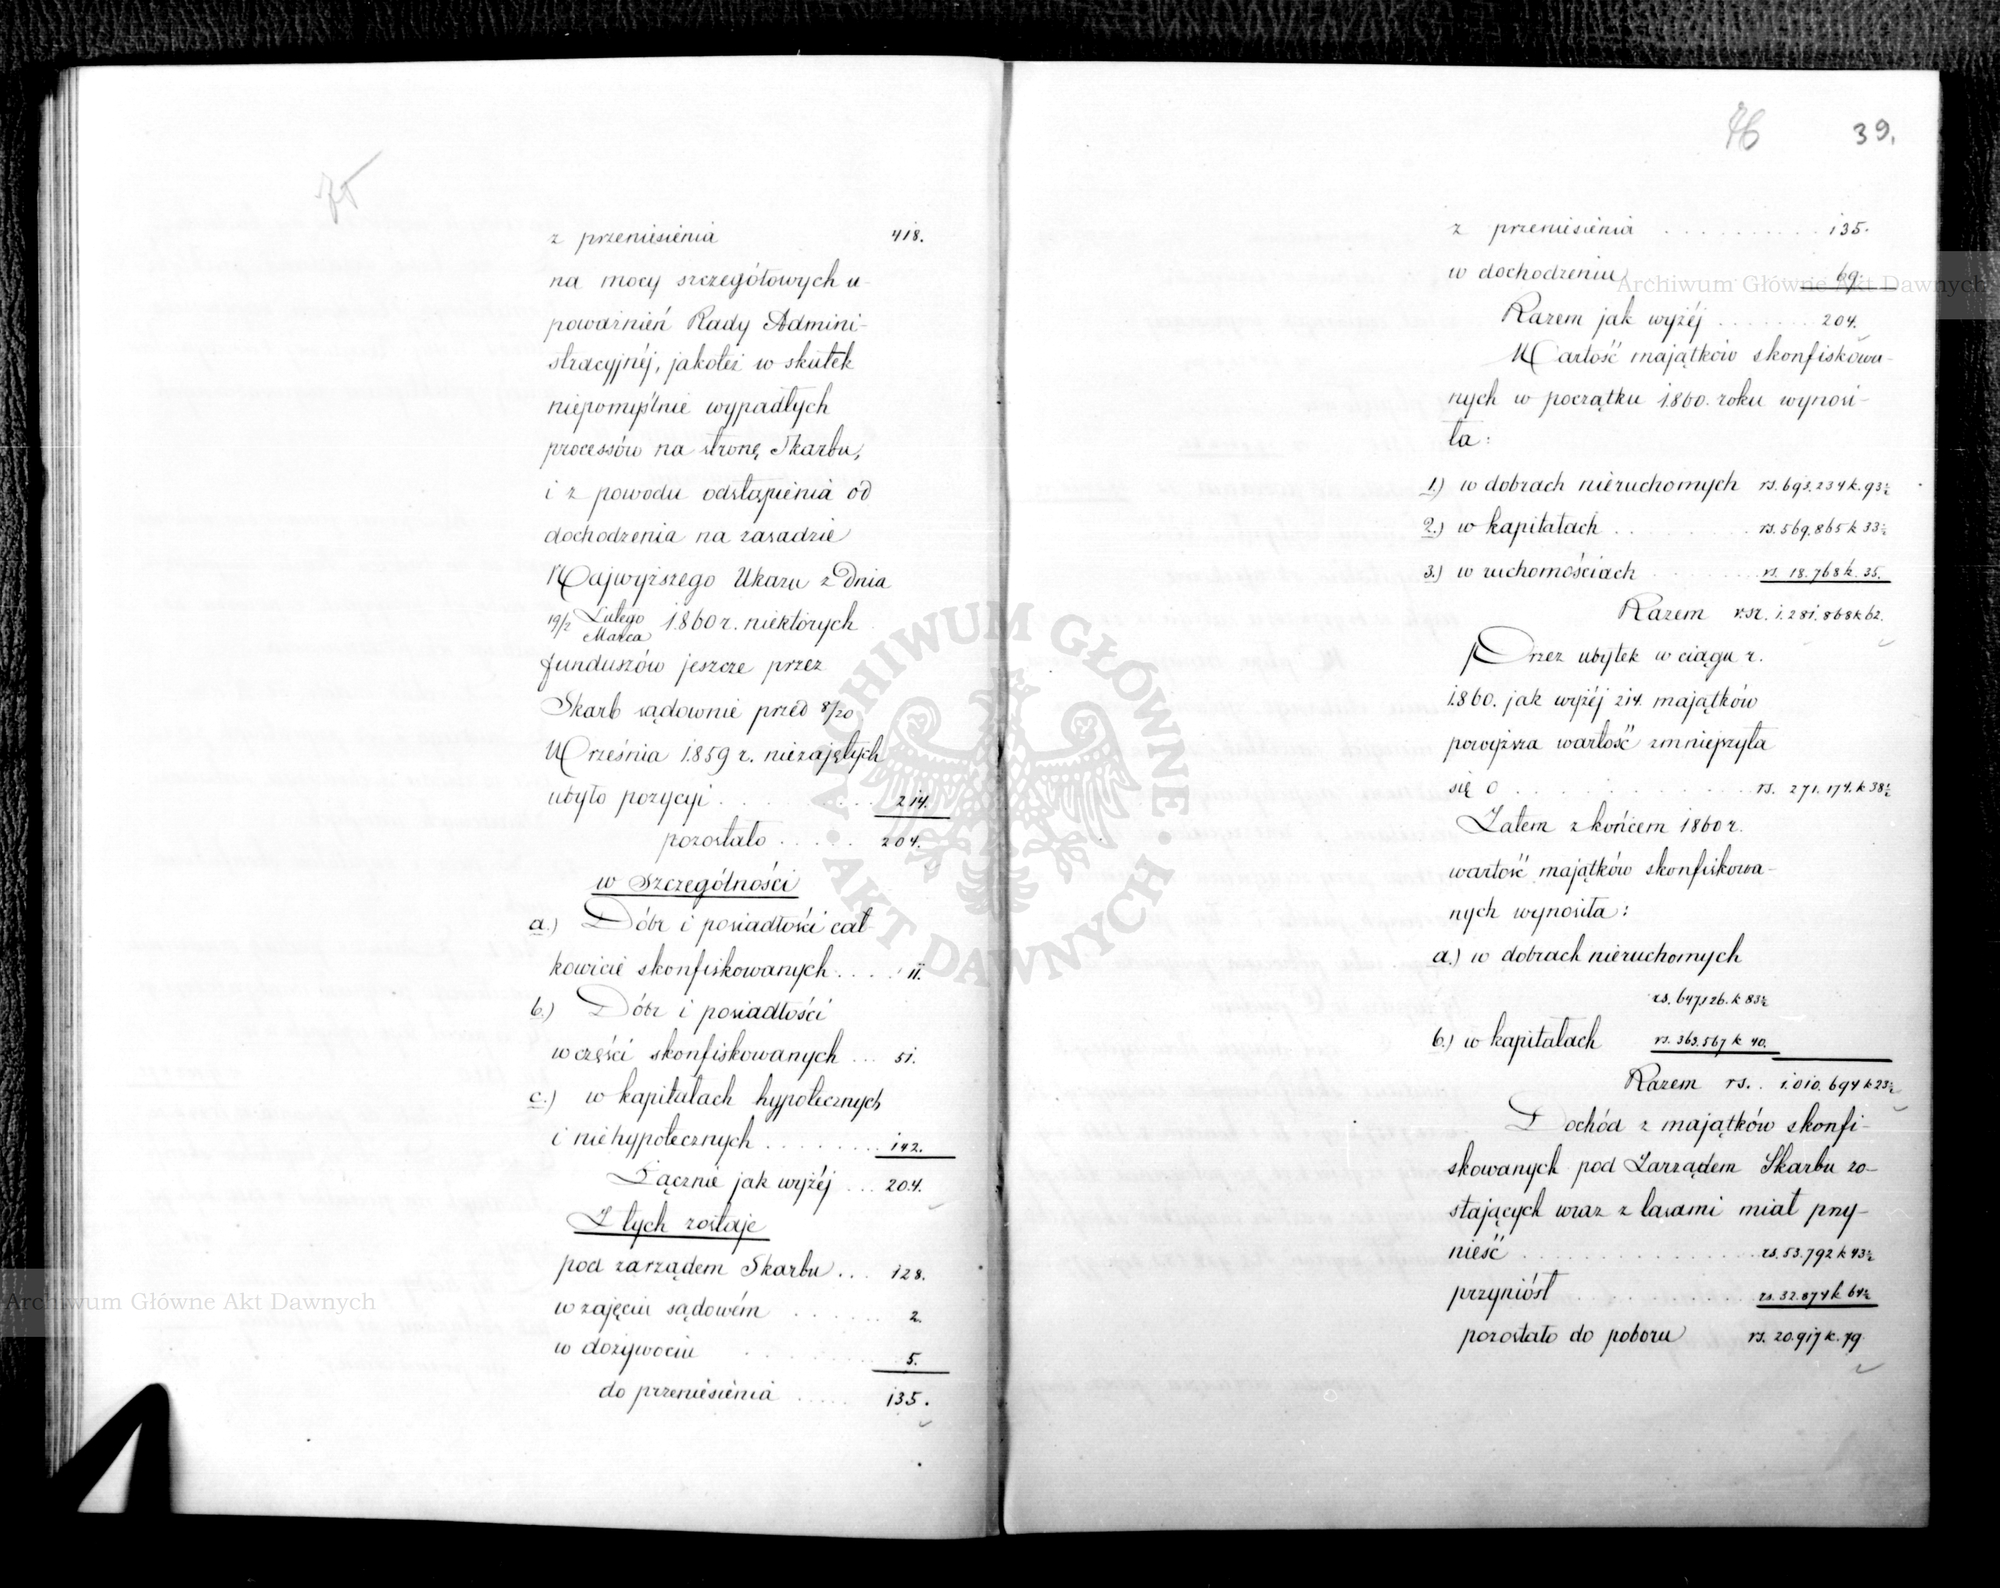 75
z przeniesienia 418.
na mocy szczegółowych u-
poważnień Rady Admini-
stracyjnéj, jakoteż w skutek
niepomyślnie wypadłych
processów na stronę Skarbu,
i z powodu odstąpienia od
dochodzenia na zasadzie
Najwyższego Ukazu z dnia
19/2 Lutego/Marca 1860 r. niektórych
funduszów jeszcze przez
Skarb sądownie przed 8/20
Września 1859 r. niezajętych
ubyło pozycyi . . . . . . . . . 214.
pozostało . . . . . 204.
w szczególności
a.) Dóbr i posiadłości cał-
kowicie skonfiskowanych . . . . 11.
b.) Dóbr i posiadłości
w części skonfiskowanych . . . 51.
c.) w kapitałach hypotecznych
i niehypotecznych . . . . . . . . 142.
Łącznie jak wyżéj . . . 204.
Z tych zostaje
pod zarządem Skarbu . . . 128.
w zajęciu sądowém . . . . . . 2.
w dożywociu . . . . . . . . 5.
do przeniesienia . . . . . 135.
76 39.
z przeniesienia . . . . . . . . . . 135.
w dochodzeniu 69.
Razem jak wyżéj . . . . . . . 204.
Wartość majątków skonfiskowa-
nych w początku 1860. roku wynosi-
ła:
1.) w dobrach nieruchomych rs. 693,234 k. 93½
2.) w kapitałach . . . . . . . . rs. 569,865 k 33½
3.) w ruchomościach . . . . . . rs. 18.768 k. 35.
Razem rsr. 1.281.868 k 62.
Przez ubytek w ciągu r.
1860. jak wyżéj 214. majątków
powyższa wartość zmniejszyła
się o . . . . . . . . . . . . . rs. 271.174. k 38½
Zatem z końcem 1860 r.
wartość majątków skonfiskowa-
nych wynosiła:
a.) w dobrach nieruchomych
rs. 647,126. k 83½
b.) w kapitałach rs. 363.567 k 40.
Razem rs. . 1.010.694 k 23½
Dochód z majątków skonfi-
skowanych pod Zarządem Skarbu zo-
stających wraz z lasami miał przy-
nieść . . . . . . . . . . . . . rs. 53.792 k 43½
przyniósł . . . . . . . . . . rs. 32.874 k 64½
pozostało do poboru rs. 20.917 k. 79.
Archiwum Główne Akt Dawnych
Archiwum Główne Akt Dawnych
ARCHIWUM GŁÓWNE · AKT DAWNYCH ·